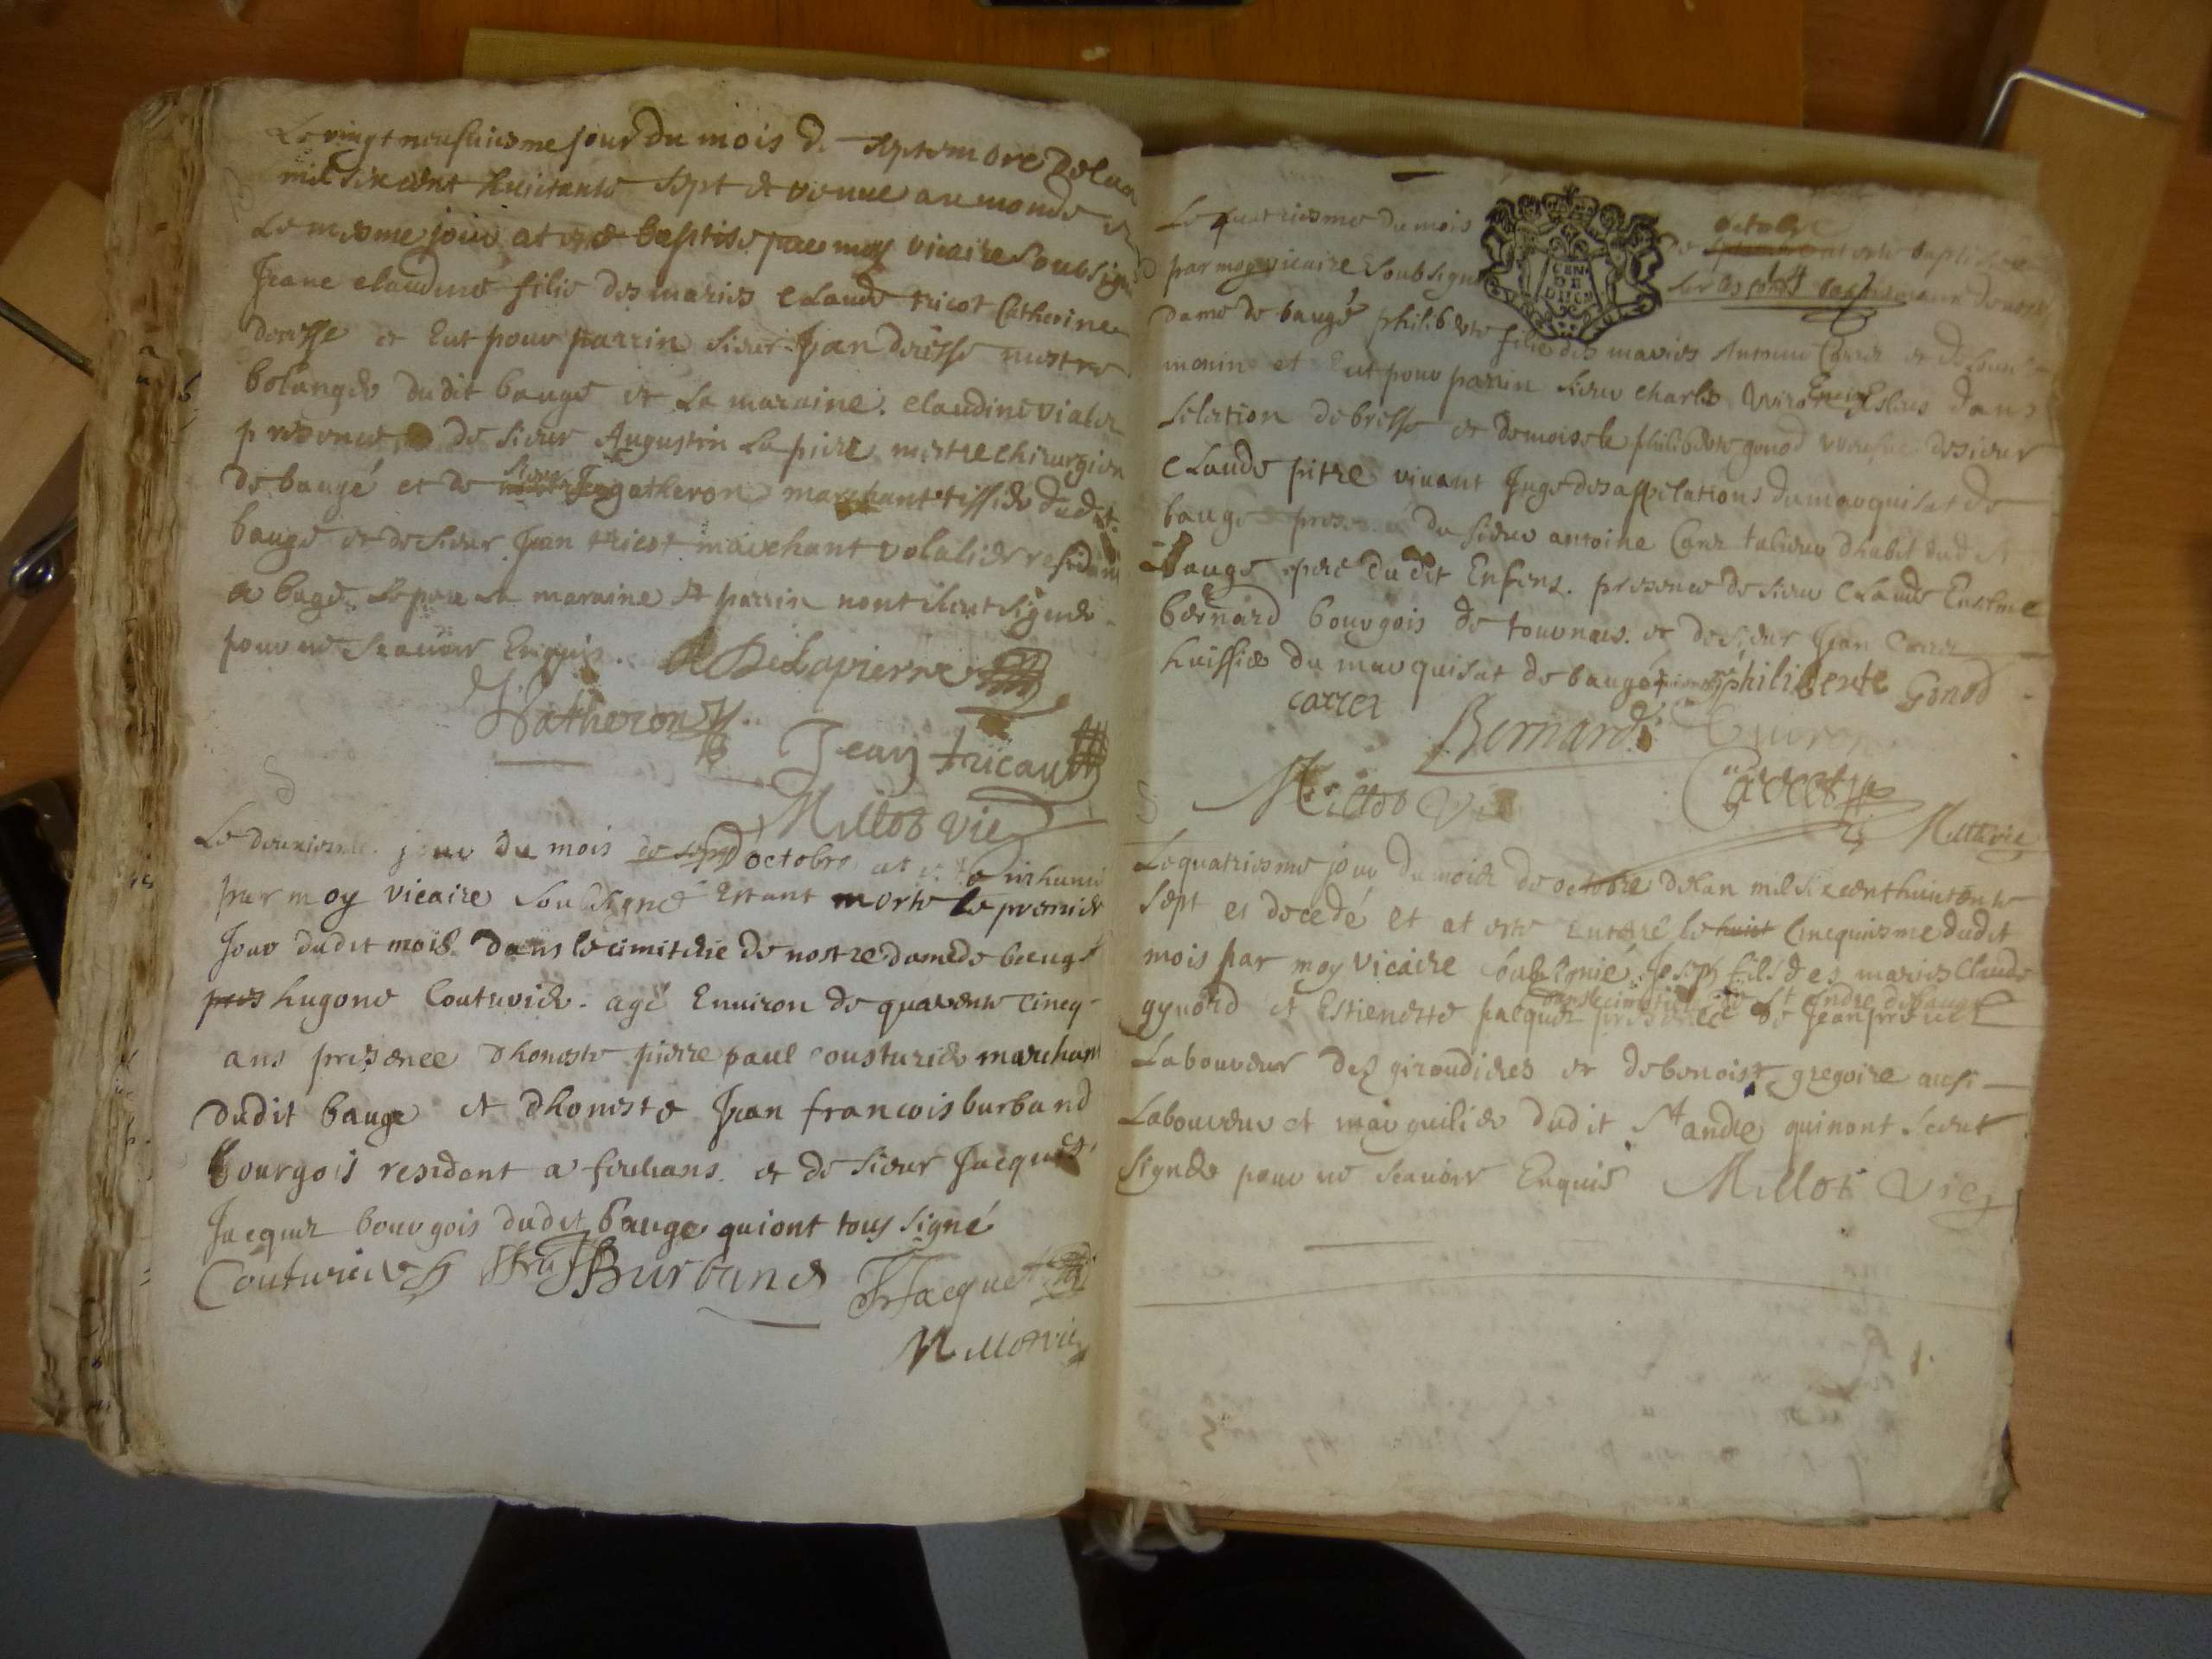 Le vingt neufuiesme jour du mois de septembre de lan
mil six cent huictante sept et venue au monde et
le mesme jour at esté baptisé par moy vicaire soubsigné
Jeane claudine fille des mariés claude tricot Catherine
et eut pour parrin sieur Jean mestre
bolangé dudit baugé et la maraine claudine
presence de sieur Augustin Lapiere mestre chirurgien
de baugé et de sieur gatheron marchant tissié dudit
baugé et de sieur Jean tricot marchant resident
a bagé. Le pere La maraine et parrin nont signés
pour ne scauoir Enquis. Delapierre
Gatheron
Jean tricaud
Millot vic
Le jour du mois de sept octobre at esté inhumé
par moy vicaire soubsigné Estant morte le premier
Jour dudit mois dans le cimitiere de nostre dame de baugé
hugone Couturier agé Enuiron de quarente cincq
ans presence dhoneste pierre paul cousturier marchant
dudit baugé et dhoneste Jean francois burband
bourgois resident a et de sieur Jacques
Jacquet bourgois dudit baugé qui ont tous signé
Couturier Burband Jacquet
Millot vic
Le quatriesme du mois de octobre at esté baptisée
par moy vicaire soubsigné
GEN DE
dame de baugé philiberte fille des mariés Antoine Carré et de
monin et eut pour parrin sieur charles Esleus dans
Lelection de bresse et demoiselle philiberte gonod de sieur
claude pitre viuant Juge des appelations du marquisat de
baugé du sieur antoine dhabit dudit
baugé pere dudit Enfens. presence de sieur claude
bernard bourgois de tournus. et de sieur Jean Carré
huissié du marquisat de baugé philiberte Gonod
carrer Bernard
Millot Vic Carret
Millot vic
Le quatriesme jour du mois de octobre delan mil six cent huictante
sept et decedé et at esté Enterré le huict cincquiesme dudit
mois par moy vicaire soubsigné Joseph fils des mariés claude
dans le cimitiere de St Andre de baugé
guoird et Estienette pacquer presence de Jean
Laboureur des giroudieres et de benoist gregoire aussi
Laboureur et marguilier dudit St andre qui nont sceut
signés pour ne scauoir Enquis Millot Vic